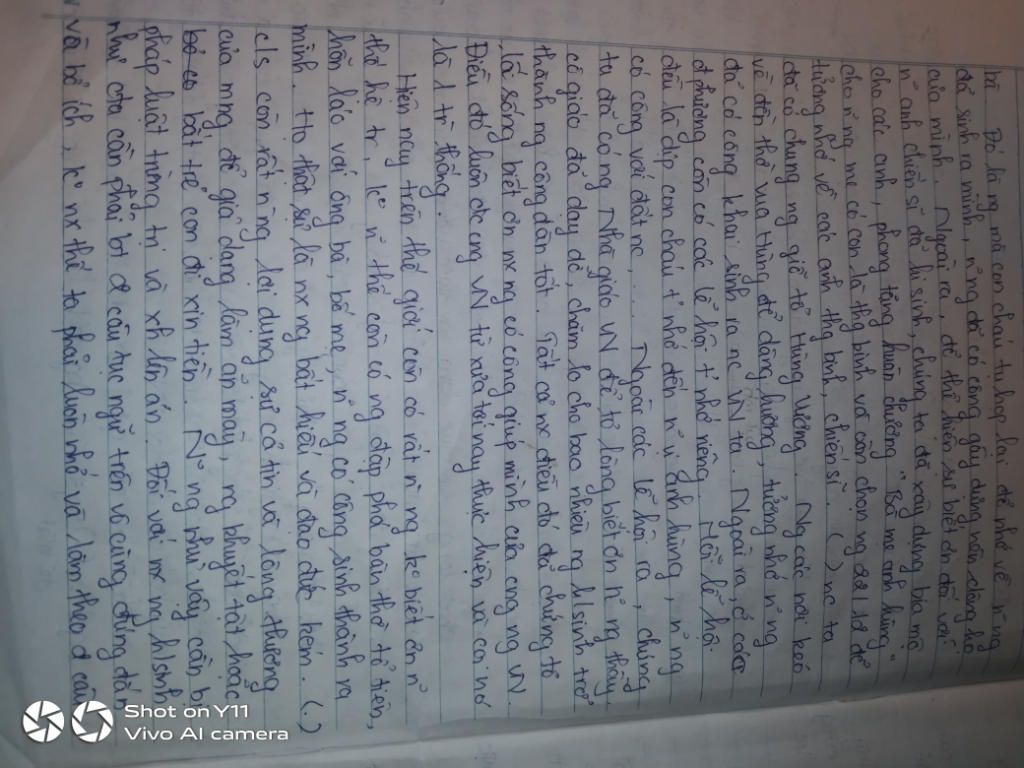 bè. Đó là ng mà con cháu tụ họp lại để nhớ về n~ng
đã sinh ra mình, n~ng đã có công gây dựng nên dòng họ
của mình. Ngoài ra, để thể hiện sự biết ơn đối với
n~ anh chiến sĩ đã hi sinh, chúng ta đã xây dựng bia mộ
cho các anh, phong tặng huân chương "Bà mẹ anh hùng"
cho n~ng mẹ có con là thg binh và còn chọn ng để
tưởng nhớ về các anh thg binh, chiến sĩ. ( ) nc ta
đã có chung ng giỗ tổ Hùng Vương. Ng các nơi kéo
về đền thờ vua Hùng để dâng hương, tưởng nhớ n~ng
đã có công khai sinh ra nc VN ta. Ngoài ra, ở các
địa phương còn có các lễ hội t² nhớ riêng. Mỗi lễ hội
đều là dịp con cháu t² nhớ đến n~ vị anh hùng, n~ng
có công với đất nc, ... Ngoài các lễ hội ra, chúng
ta đã có ng Nhà giáo VN để tỏ lòng biết ơn n~ng thầy,
cô giáo đã dạy dỗ, chăm lo cho bao nhiêu ng h/sinh trở
thành ng công dân tốt. Tất cả n~ điều đó đã chứng tỏ
lối sống biết ơn n~ ng có công giúp mình của cng ng VN.
Điều đó luôn dc cng VN từ xưa tới nay thực hiện và coi nó
là 1 tr` thống.
Hiện nay trên thế giới còn có rất n` ng k° biết ơn n~
thế hệ tr, k° n~ thế còn có ng đập phá bàn thờ tổ tiên,
hỗn láo với ông bà, bố mẹ, n~ng có công sinh thành ra
mình. Họ thật sự là n~ ng bất hiếu và đạo đức kém. ( )
c/s còn rất n` ng lợi dụng sự cả tin và lòng thương
của mng để giả dạng làm ăn mày, ng khuyết tật hoặc
bắt trẻ con đi xin tiền. N~ng như vậy cần bị
pháp luật trừng trị và xh lên án. Đối với n~ ng h/sinh
như cta cần phải bt d câu tục ngữ trên vô cùng đúng đắn
và bổ ích, k° n~ thế ta phải luôn nhớ và làm theo d câu
Shot on Y11
Vivo AI camera